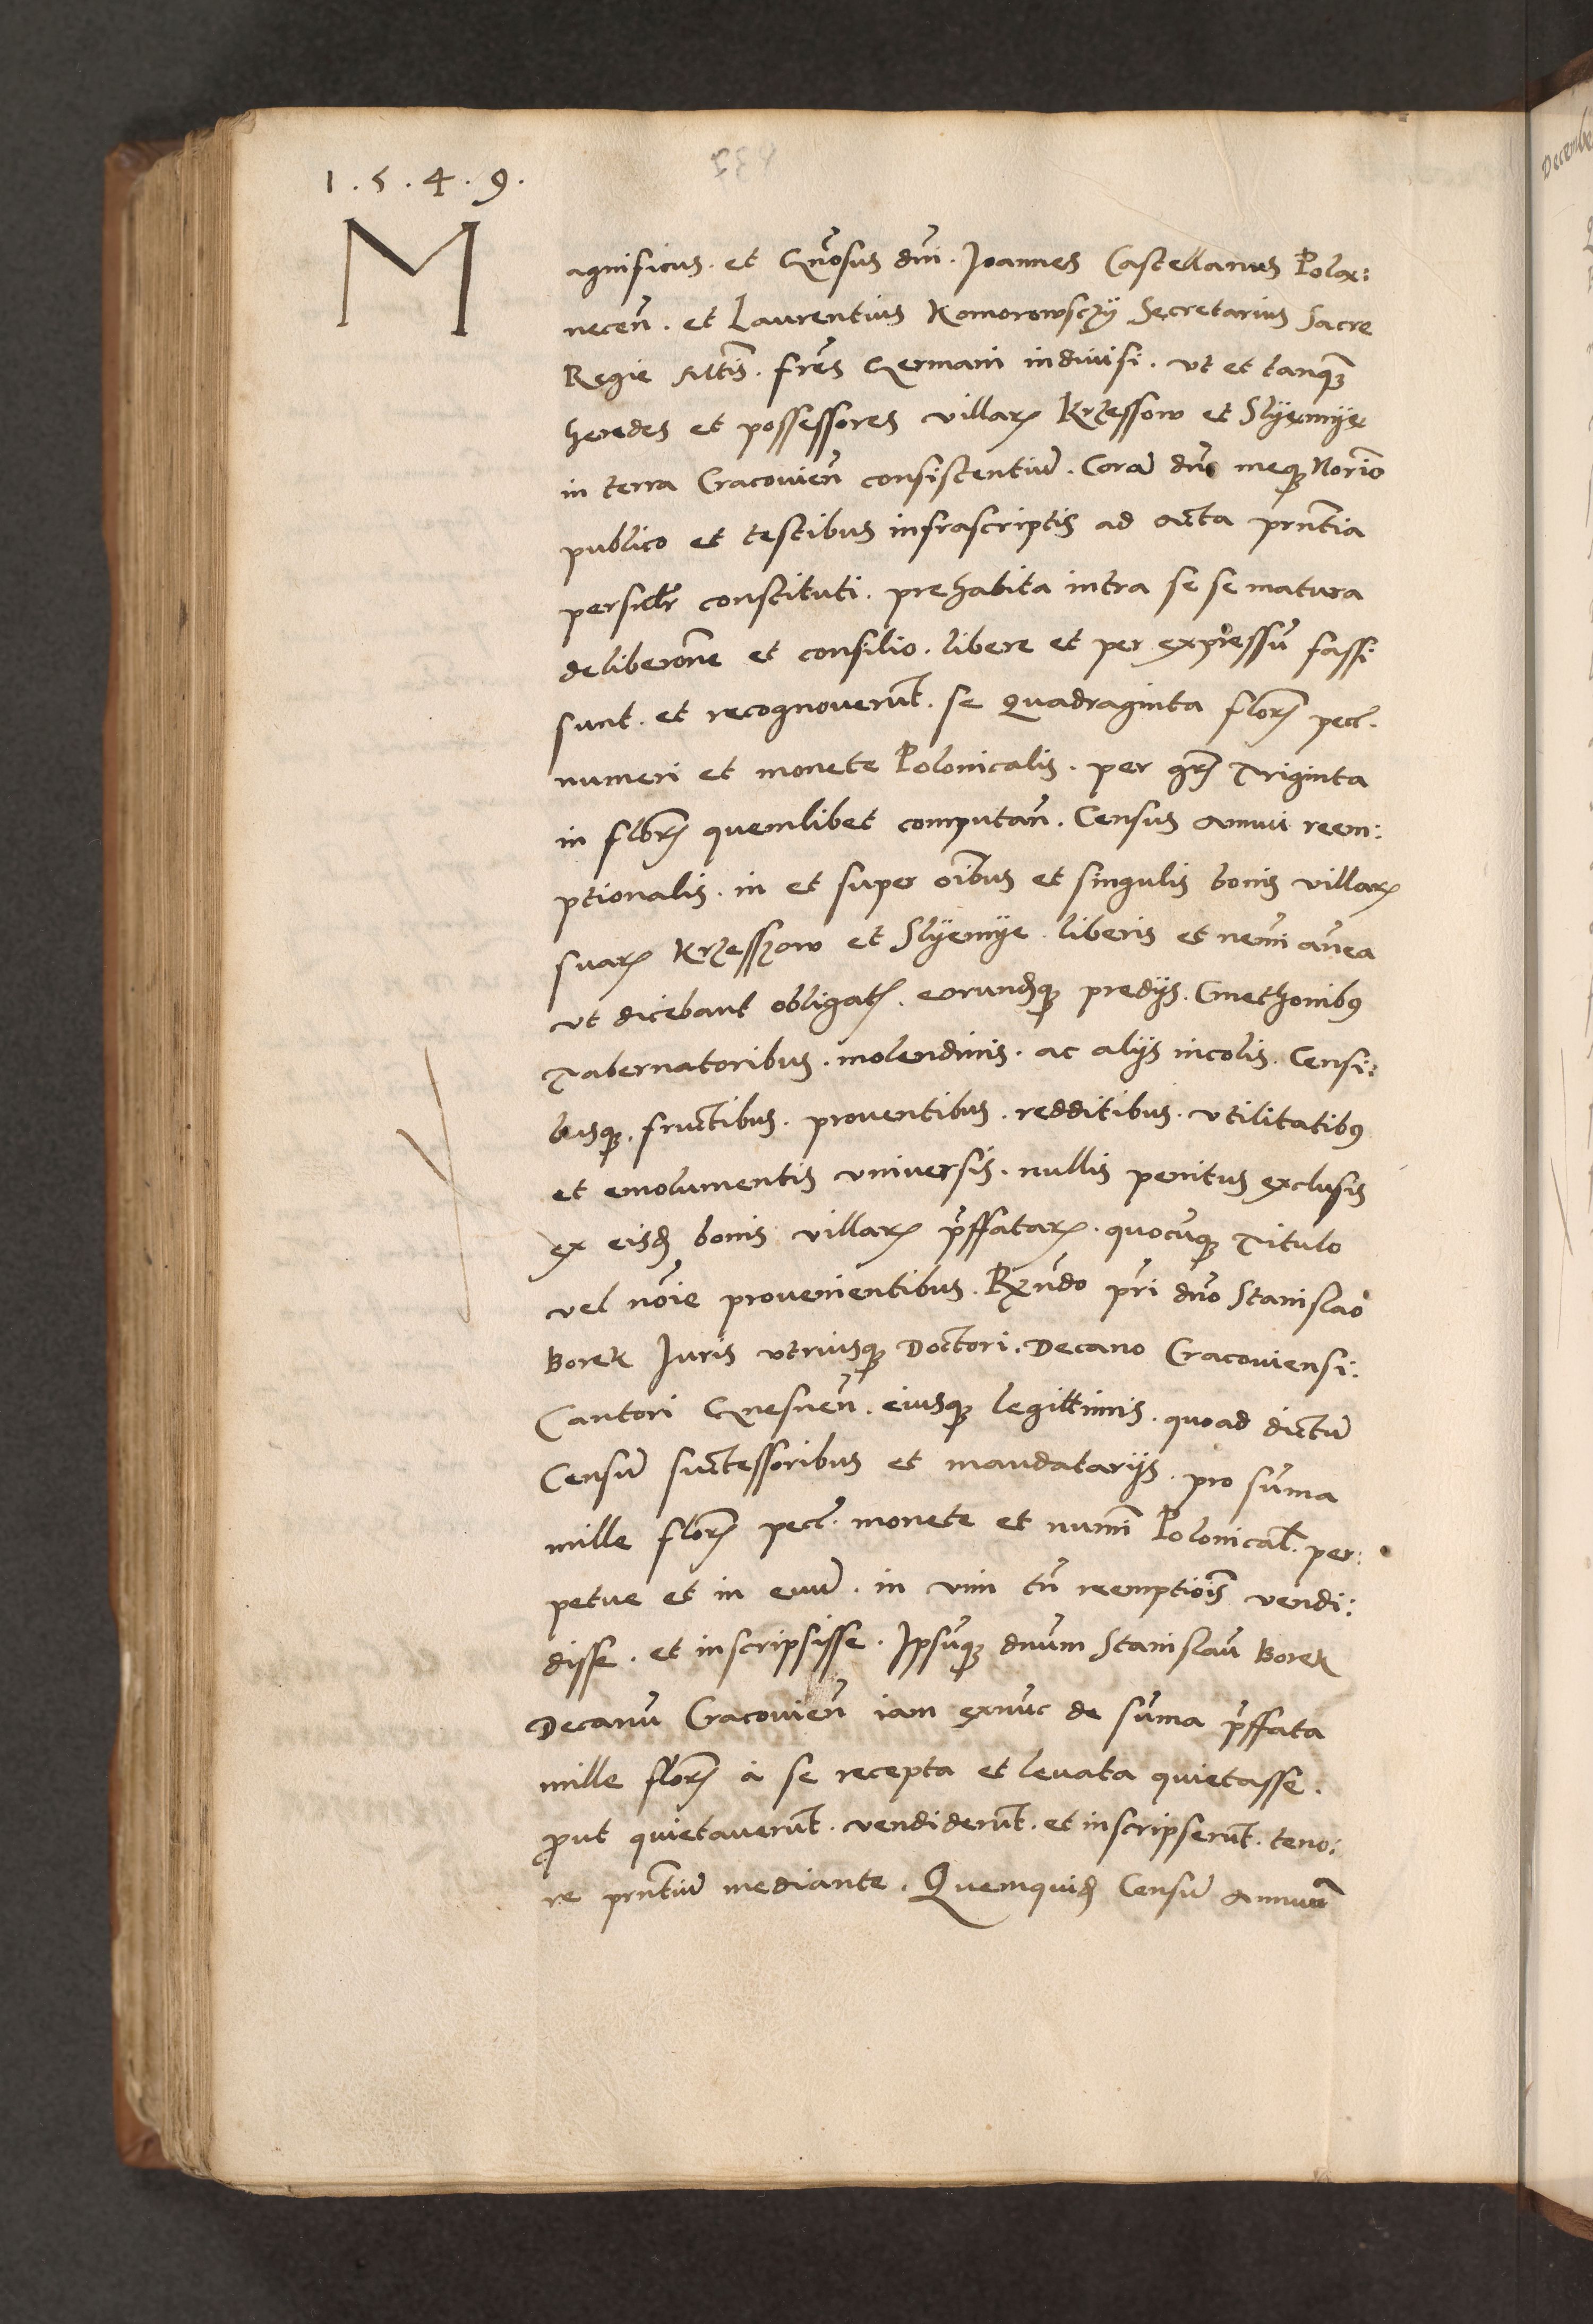 1.5.4.9.
Magnificus. et Gn̄osus dn̄i. Joannes Castellanus Polax:
necen̄. et Laurentius Komorowsczÿ Secretarius Sacre
Regie Mtis̄. frēs Germani indivisi. ut et tanqꝫ
heredes et possessores villarꝫ Krzessow et Slÿemÿe
in terra Cracovien̄ consistentiū. Corā dn̄o meqꝫ Norīo
publico et testibus infrascriptis ad acta pn̄tia
persūlr constituti. prehabita intra se se matura
deliberōne et consilio. libere et per expressū fassi
sunt. et recognoverūt. se Quadraginta florꝫ pecc.
numeri et monete Polonicalis. per grꝫ Triginta
in florꝫ quemlibet computan̄. Census annui reem:
ptionalis. in et super oībus et singulis bonis villarꝫ
suarꝫ Krzesszow et Slÿemÿe. liberis et nemī an̄ea
ut dicebant obligatꝫ. eorundꝫqꝫ predijs. Cmethonibꝰ
Tabernatoribus. molendinis. ac alijs incolis. Censi:
busqꝫ. fructibus. proventibus. redditibus. utilitatibꝰ
et emolumentis universis. nullis penitus exclusis
ex eisdꝫ bonis villarꝫ p̄ffatarꝫ. quocūqꝫ Titulo
vel nōie provenientibus. Rx̄ndo pr̄i dn̄o Stanislao
Borek Juris utriusqꝫ Doctori. Decano Cracoviensi:
Cantori Gnesnen̄. eiusqꝫ legittimis. quoad dictū
Censū successoribus et mandatarijs. pro sūma
mille florꝫ pecc. monete et numī Polonical̄. per:
petue et in evū. in vim tn̄ reemptiōis vendi:
disse. et inscripsisse. Ipsūqꝫ dnum Stanislaū Borek
Decanū Cracovien̄ iam exnūc de sūma p̄ffata
mille florꝫ à se recepta et levata quietasse.
ꝓut quietaverūt. vendiderūt. et inscripserūt. teno:
re pn̄tiū mediante. Quemquidꝫ Censū annuū